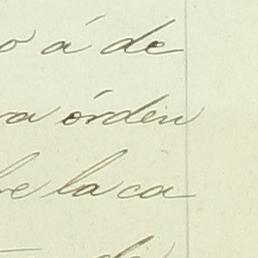 o á de
a órden
re la ca